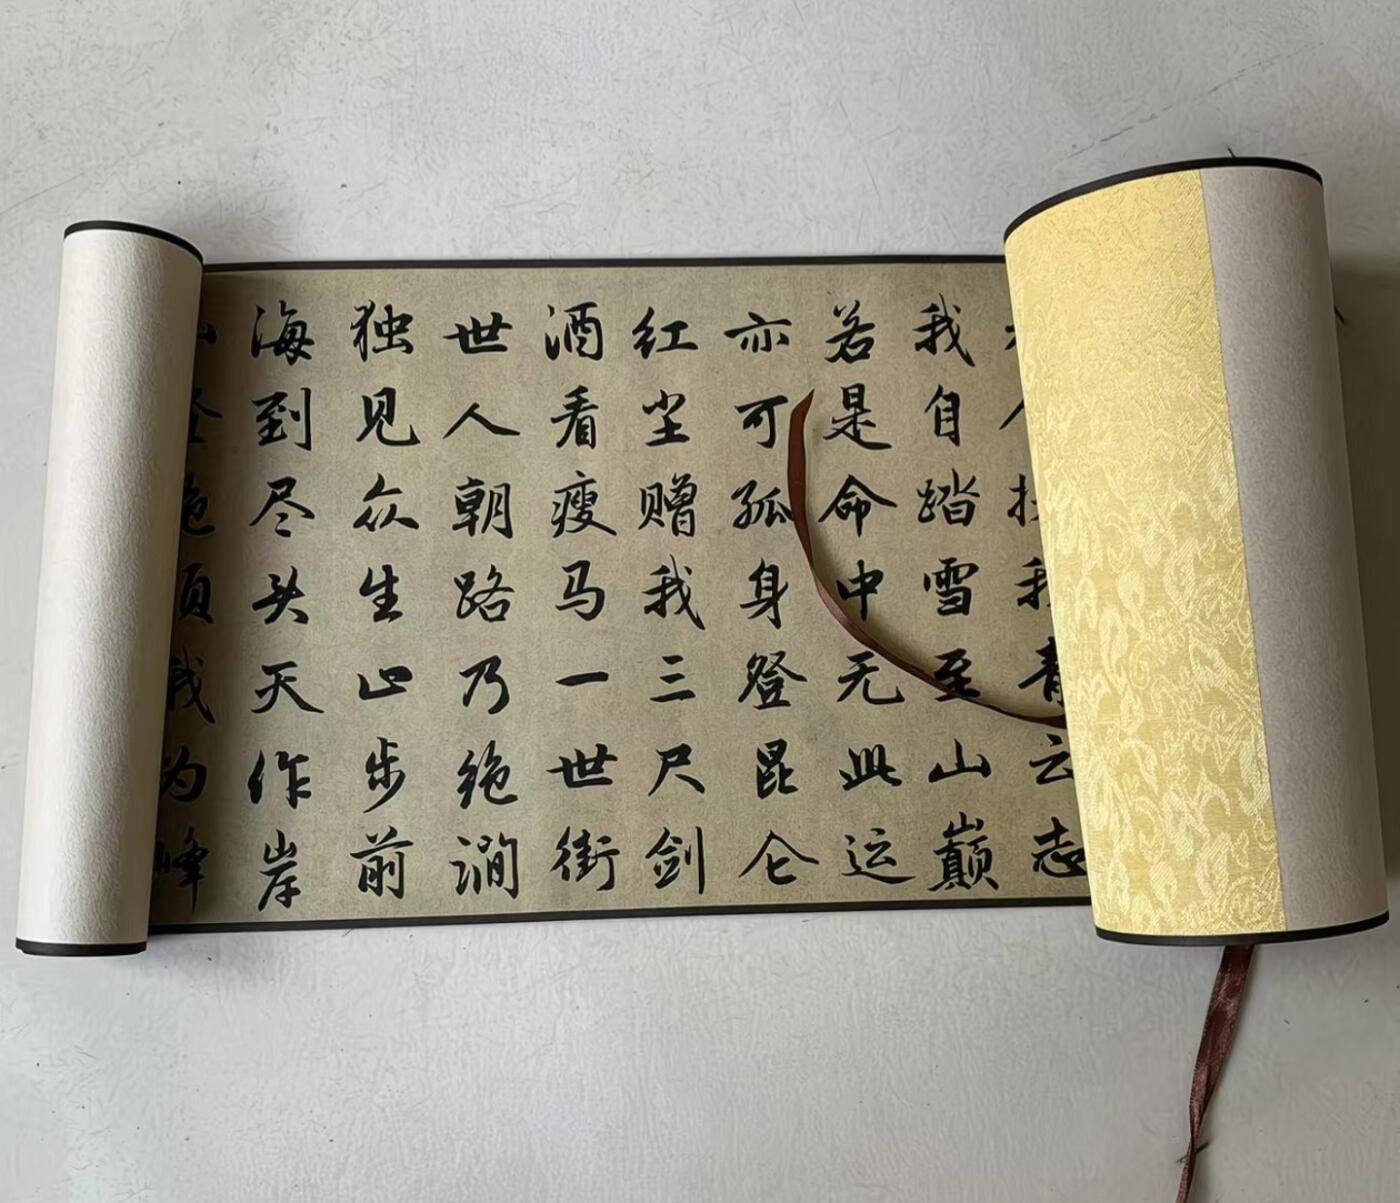 我青云志
我自踏雪至山巅
若是命中无此运
亦可孤身登昆仑
红尘赠我三尺剑
酒看瘦马一世街
世人朝路乃绝涧
独见众生止步前
海到尽头天作岸
山登绝顶我为峰